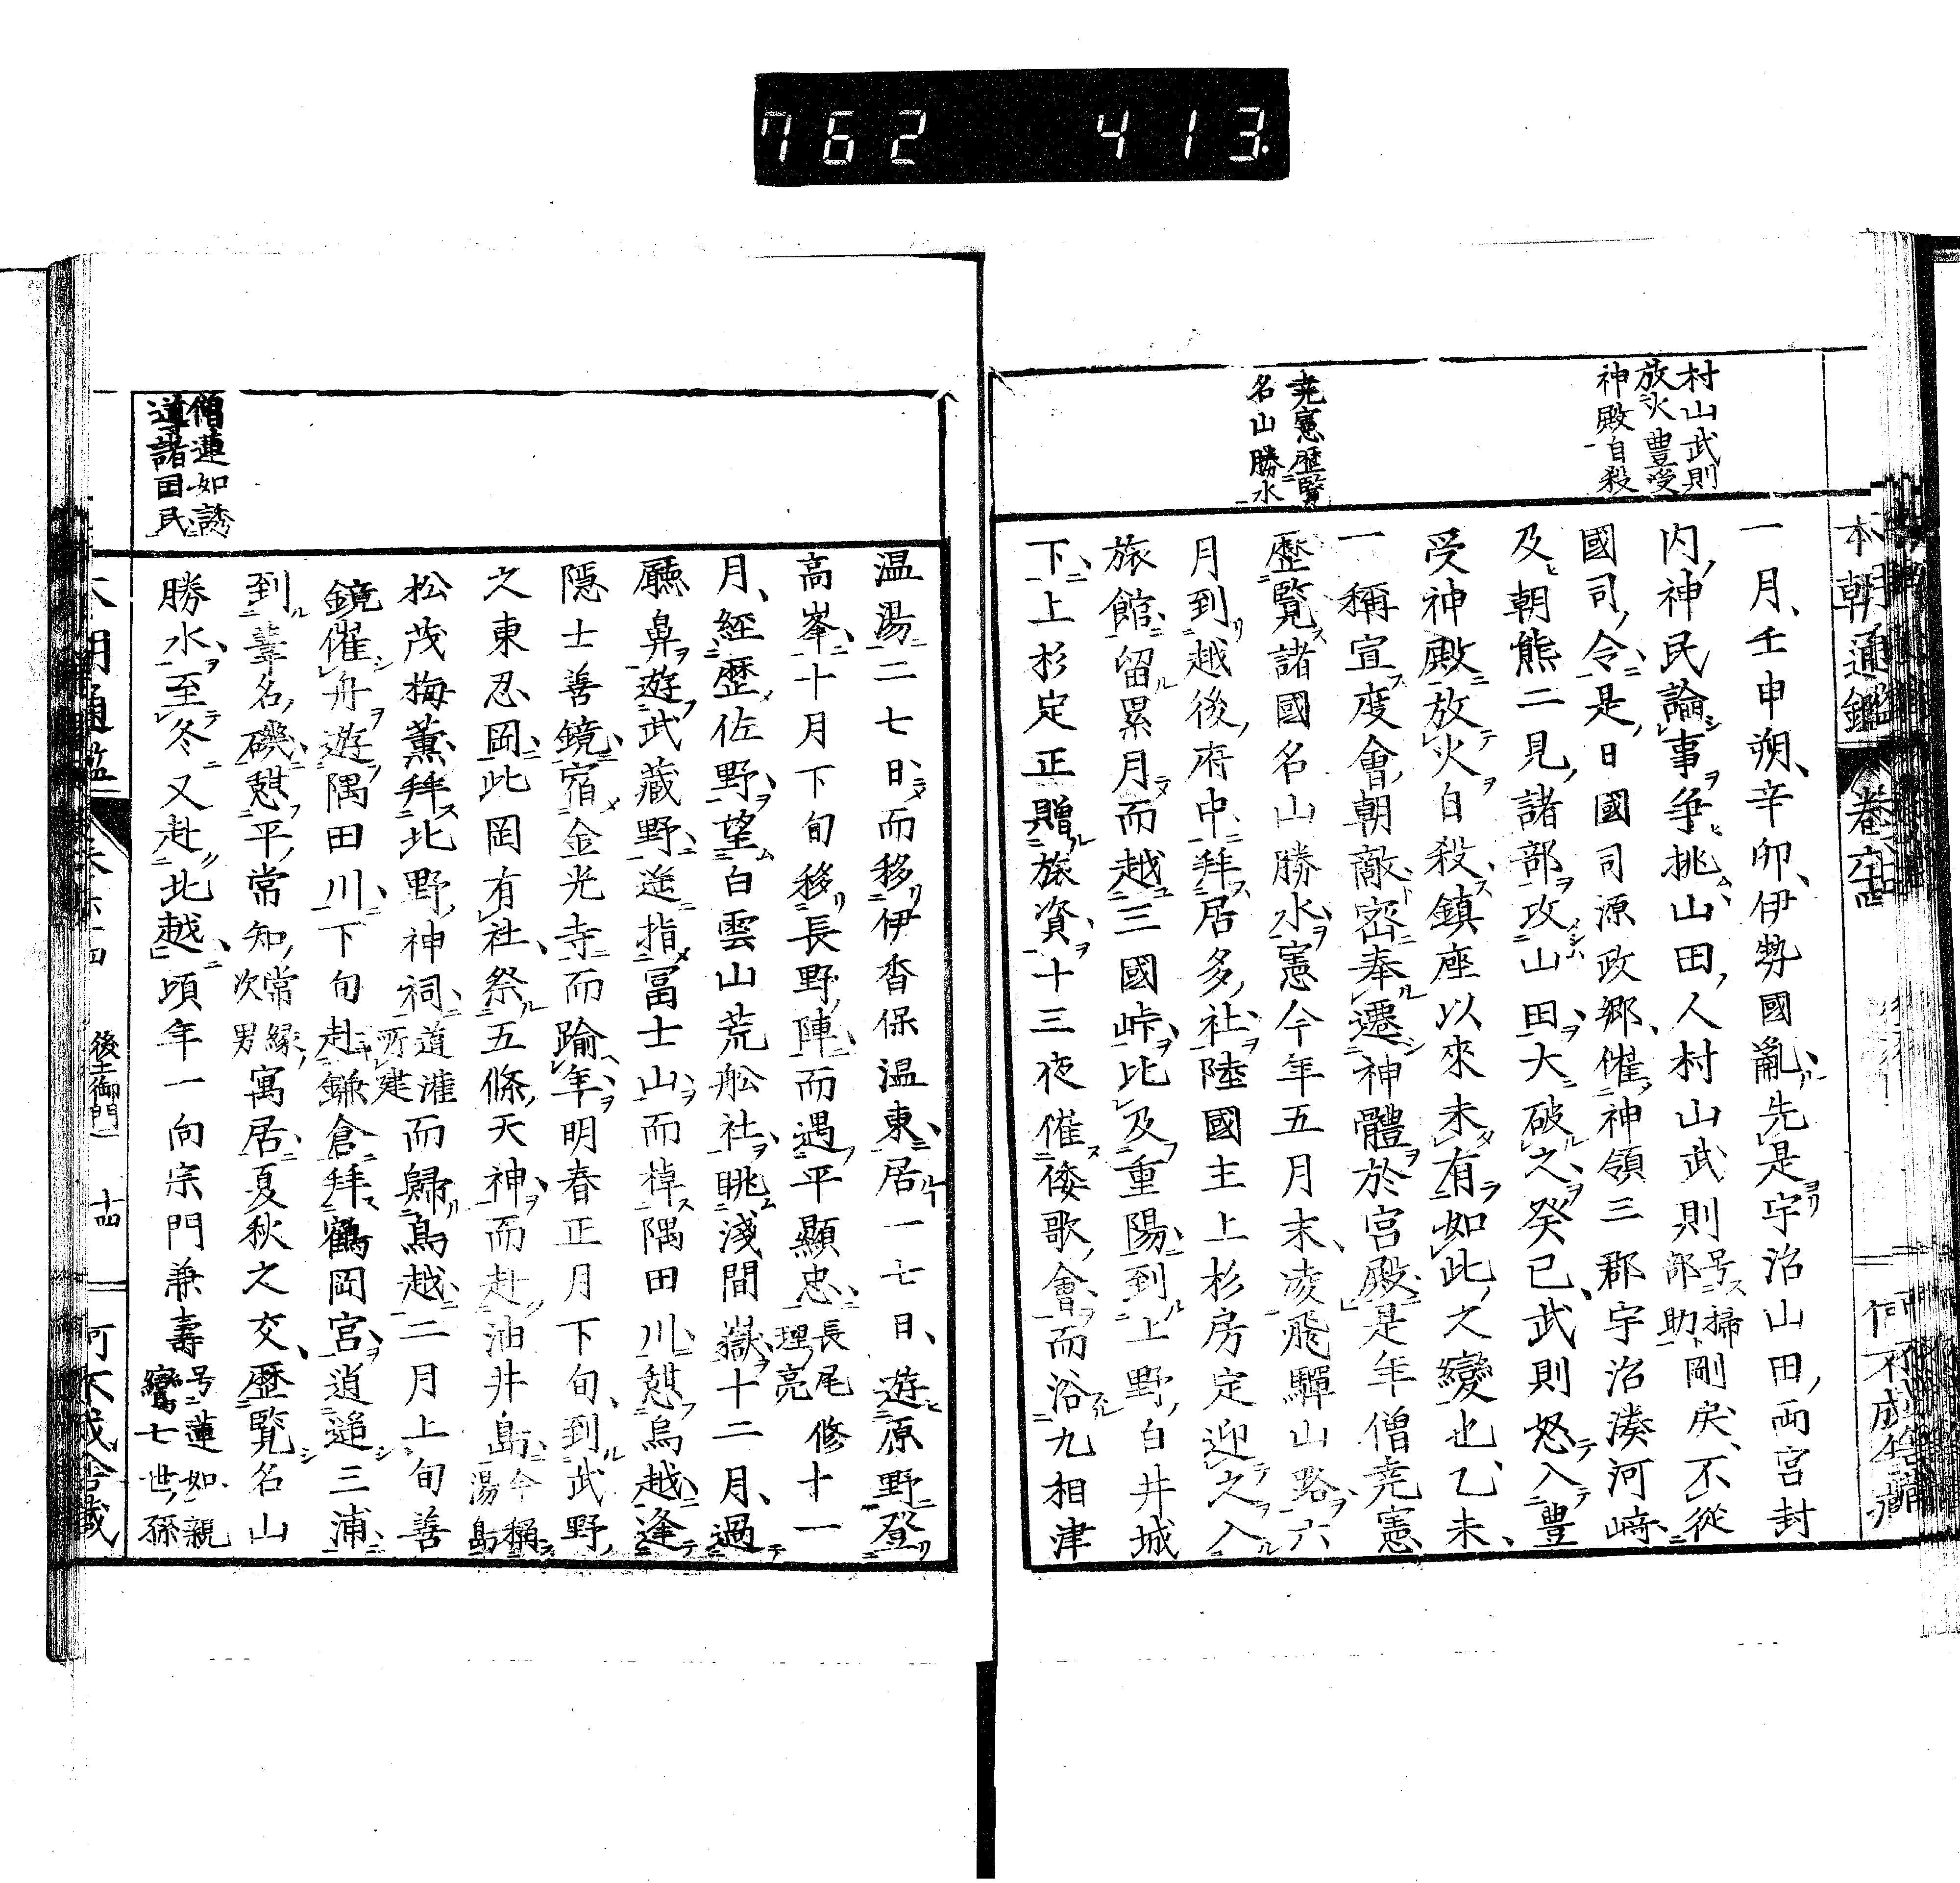 762 413
本朝通鑑 卷六十四
村山武則
放火豊受
神殿自殺
尭憲歴覽
名山勝水
一月、壬申朔、辛卯、伊勢國亂、先是宇治山田両宮封
内、神民論事爭挑山田人村山武則号掃部助剛戾、不從
國司令是日國司源政郷、催神領三郡宇治湊河﨑
及朝熊二見諸部攻山田大破之癸巳、武則怒入豊
受神殿放火自殺鎮座以來未有如此之變也、乙未、
一祢宜度會朝敵密奉遷神體於宮殿是年僧尭憲
歷覽諸國名山勝水憲今年五月末、凌飛驒山路六
月到越後府中拜居多社陸國主上杉房定迎之入
旅館留累月而越三國峠比及重陽到上野白井城
下上杉定正贈旅資十三夜催倭歌會而浴九相津
温湯二七日而移伊香保温東居一七日、遊原野登
高峯十月下旬移長野陣而遇平顯忠長尾修理亮十一
月、經歷佐野望白雲山荒舩社眺淺間嶽十二月、過
廳鼻遊武藏野遙指冨士山而棹隅田川憇烏越逢
隠士善鏡宿金光寺而踰年明春正月下旬、到武野
之東忍岡此岡有社祭五條天神而赴油井島今稱湯島
松茂梅薫拜北野神祠道灌所建而歸烏越二月上旬善
鏡催舟遊隅田川下旬赴鎌倉拜鶴岡宮逍遥三浦
到葦名磯憇平常知常縁次男寓居夏秋之交、歷覽名山
勝水、至冬又赴北越頃年一向宗門兼壽号蓮如親鸞七世孫
僧蓮如誘
導諸国民
後土御門一 十四